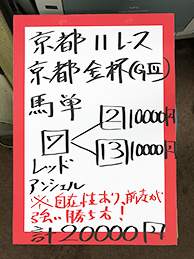 京都11レース
京都金杯(GⅢ)
馬単
7 2 10000円
13 10000円
レッド
アンシェル
※自在性あり、前走が
強い勝ち方!
計20000円